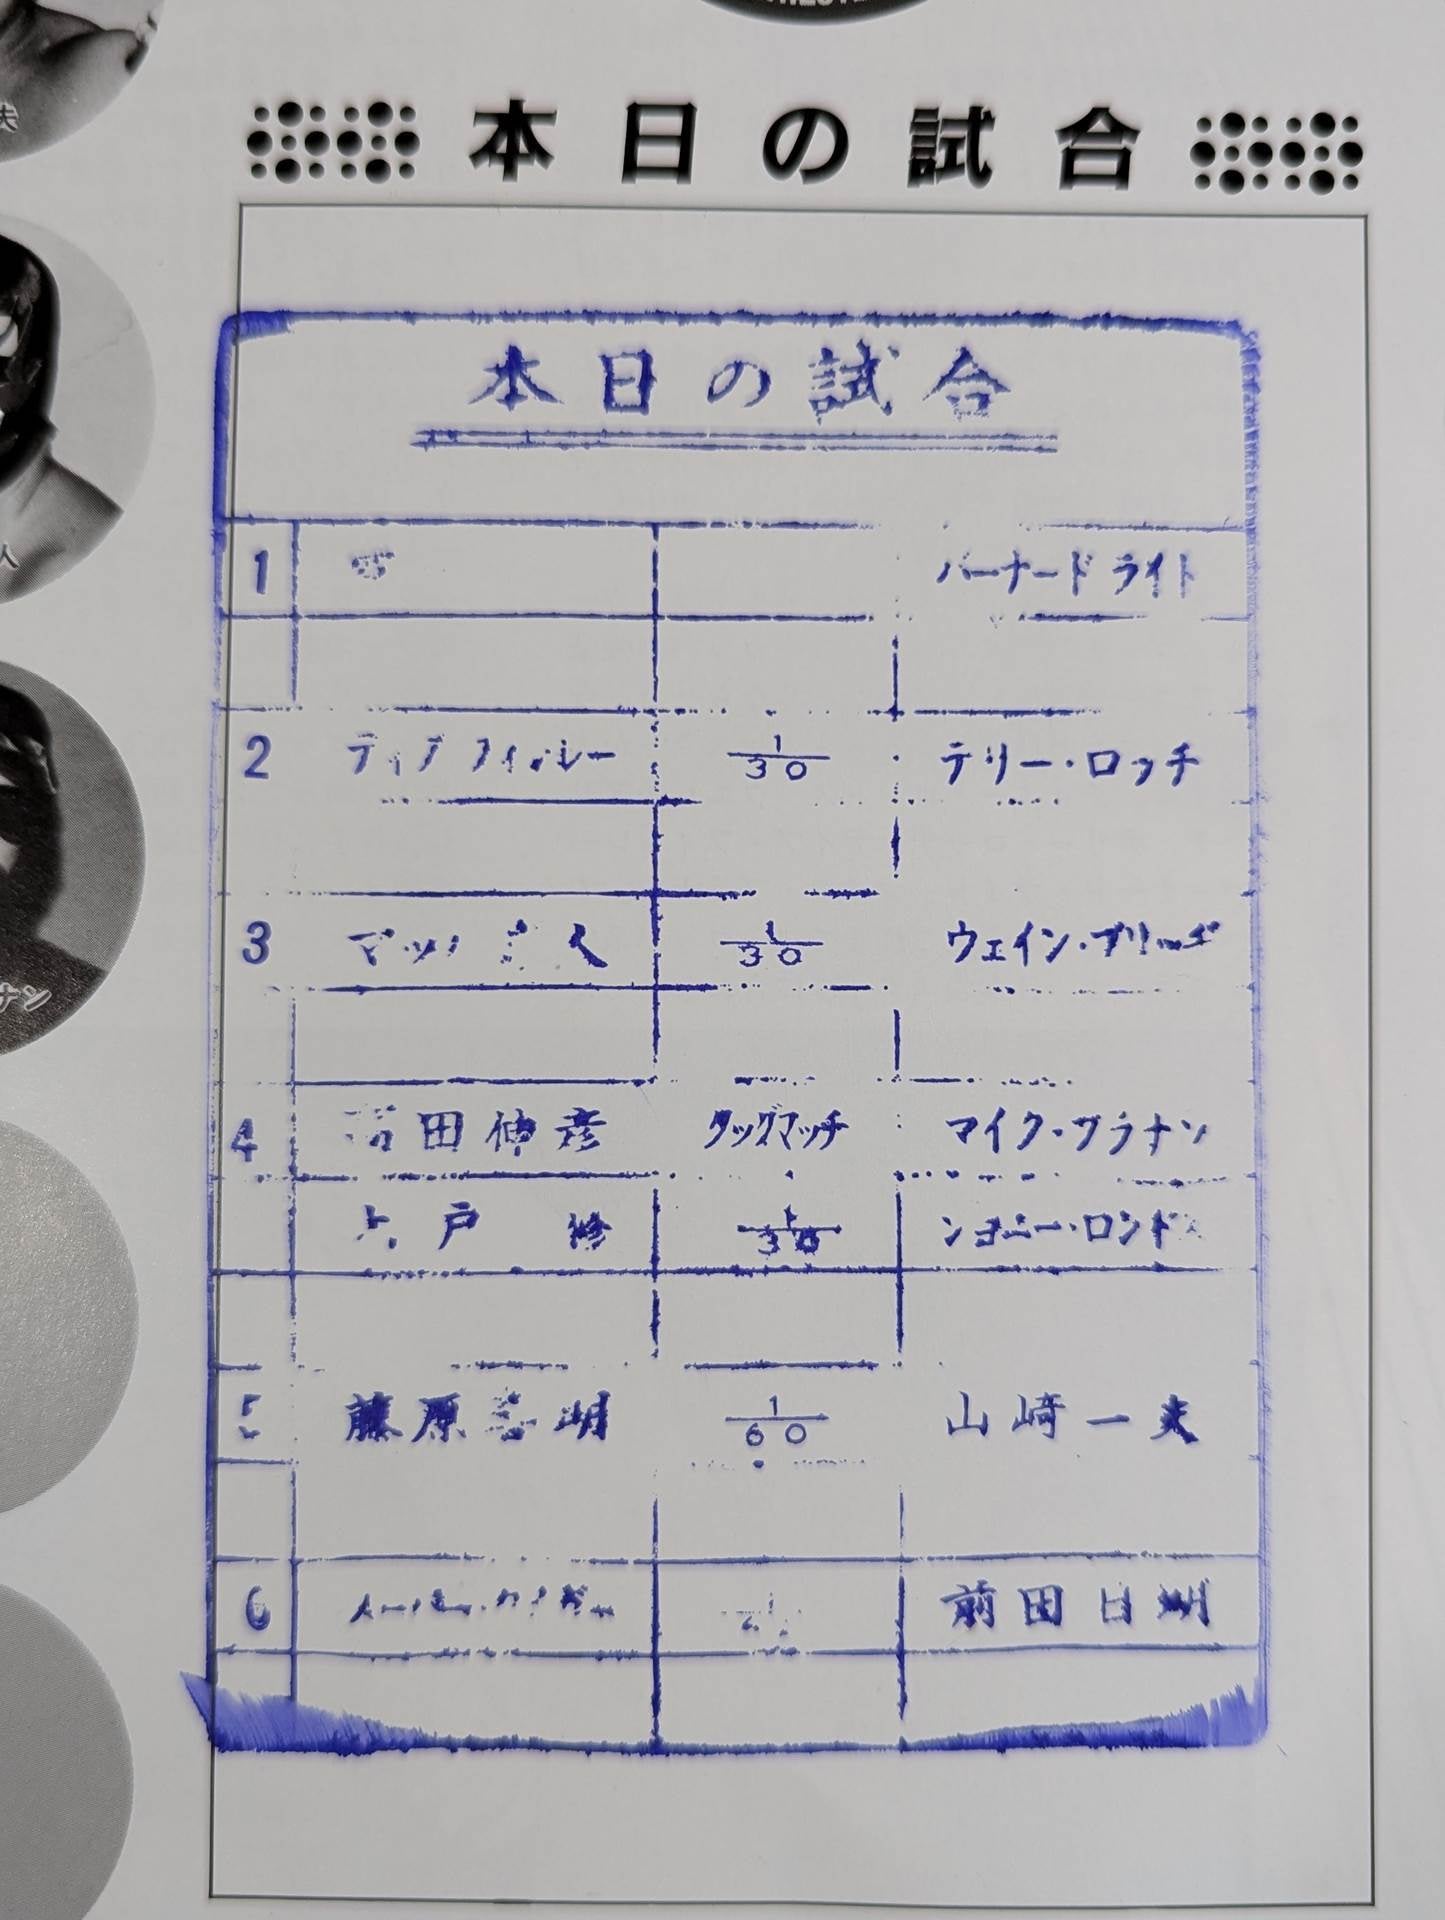 夫
人
ナン
本日の試合
本日の試合
1 バーナード ライト
2 1/30 テリー・ロッチ
3 マッハ 人 1/30 ウェイン・ブリッヂ
4 田伸彦 タッグマッチ マイク・フラナン
戸 修 1/30 ロンドス
5 藤原喜明 1/60 山崎一夫
6 前田日明